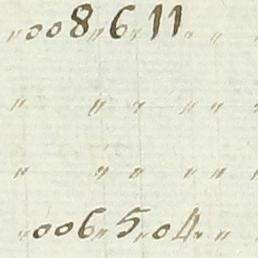 „008„6„11„ „
„ „ „ „ „
„ „ „ „ „
„006„5„04„ „